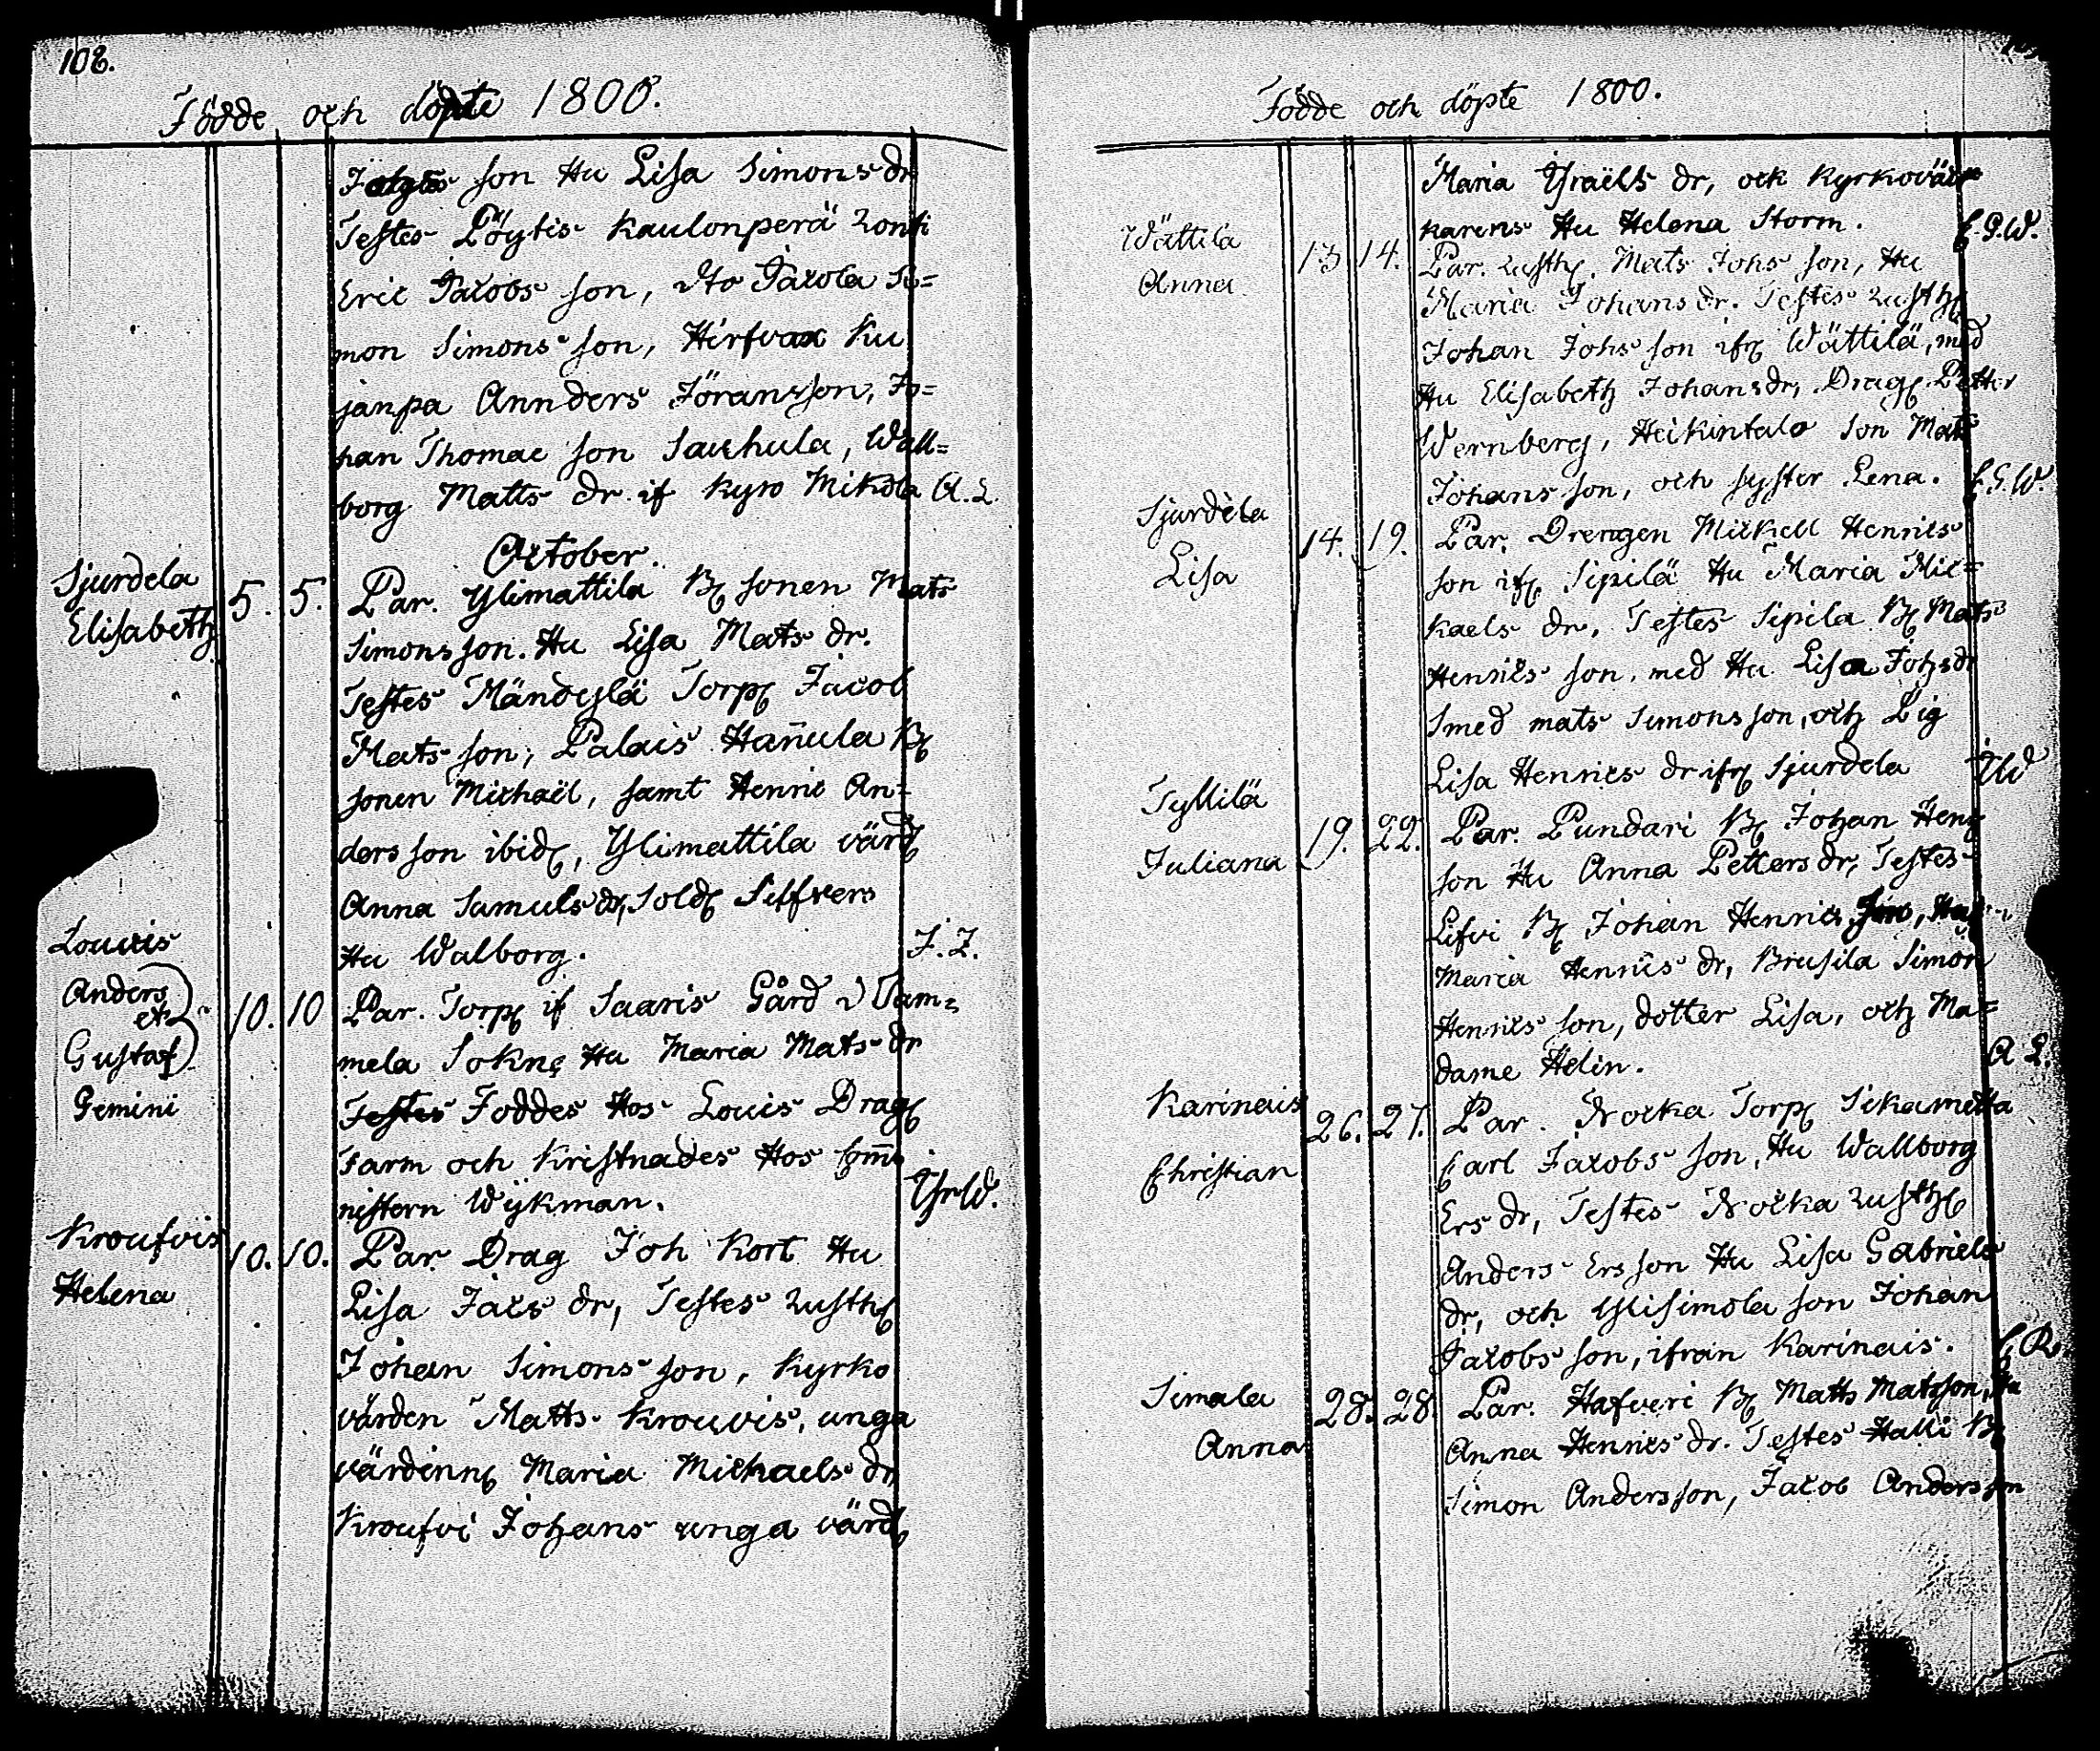 108.
Födde och döpte 1800.
son Hu Lisa Simons dr
Testes Pöytis Kaulonperä
Eric Jacobs son, Jacola Si=
mon Simons son, Ku
janpa Annders Jöransson, Jo=
han Thomae son Sauhula, Wall=
borg Matts dr. if Kyro Mikola A. L.
October.
Sjurdela
Elisabeth
5. 5. Par. Ylimattila B sonen Mats
Simons son. Hu Lisa Mats dr.
Testes Mändylä Torp Jacob
Mats son, Palais Hañula B
sonen Michaël, samt Henric An=
ders son ibid, Ylimattila värd
Anna Samuls dr, Sold Siffvers
Hu Walborg. J. Z.
Louvis
Anders
et
Gustaf
Gemini
10. 10 Par. Torp if Saaris Gård i Vam=
mela Sokn Hu Maria Mats dr
Testes Foddes Hos Louis Drag
Farm och Kristnades Hos Com̄i
nistern Wijkman.
Kroufvis
Helena
10. 10. Par. Drag Joh Kort Hu
Lisa Jacs dr, Testes Rusth
Johan Simons son, Kyrko
värden Matts Krouvis, unga
värdinn Maria Michaels dr
Kroufvi Johans unga värd
Födde och döpte 1800.
Maria Ysraels dr, och Kyrkovär
karens Hu Helena Storm. C. G. W.
Wättilä
Anna
13 14. Par. Rusth. Mats Johs son, Hu
Maria Johans dr. Testes Rusth
Johan Johs son ifr Wättilä, med
Hu Elisabeth Johans dr, Drag Petter
Wernberg, Heikintalo son Mats
Johans son, och syster Lena. C. G. W.
Sjurdela
Lisa
14. 19. Par. Drengen Mickell Henrics
son ifr Sipilä Hu Maria Mic=
kaels dr, Testes Sipila B Mats
Henrics son, med Hu Lisa Johs dr
Smed mats Simons son, och Pig
Lisa Henrics dr ifr Sjurdela
Tyllilä
Juliana
19. 22. Par. Pundari B Johan Henr
son Hu Anna Petters dr, Testes
Lifvi B Johan Henrics
Maria Henrics dr, Brusila Simon
Henrics son, dotter Lisa, och Ma=
dame Helin. A L.
Karinais
Christian
26. 27. Par. Nocka Torp Sikametta
Carl Jacobs son, Hu Wallborg
Ers dr, Testes Nocka Rusth
Anders Ers son Hu Lisa Gabriels
dr, och Ylisimola son Johan
Jacobs son, ifrån Karinais. C. R.
Simala
Anna
28. 28 Par. Hafveri B Matts Matsson, Hu
Anna Henrics dr. Testes Halli B
Simon Andersson, Jacob Andersson